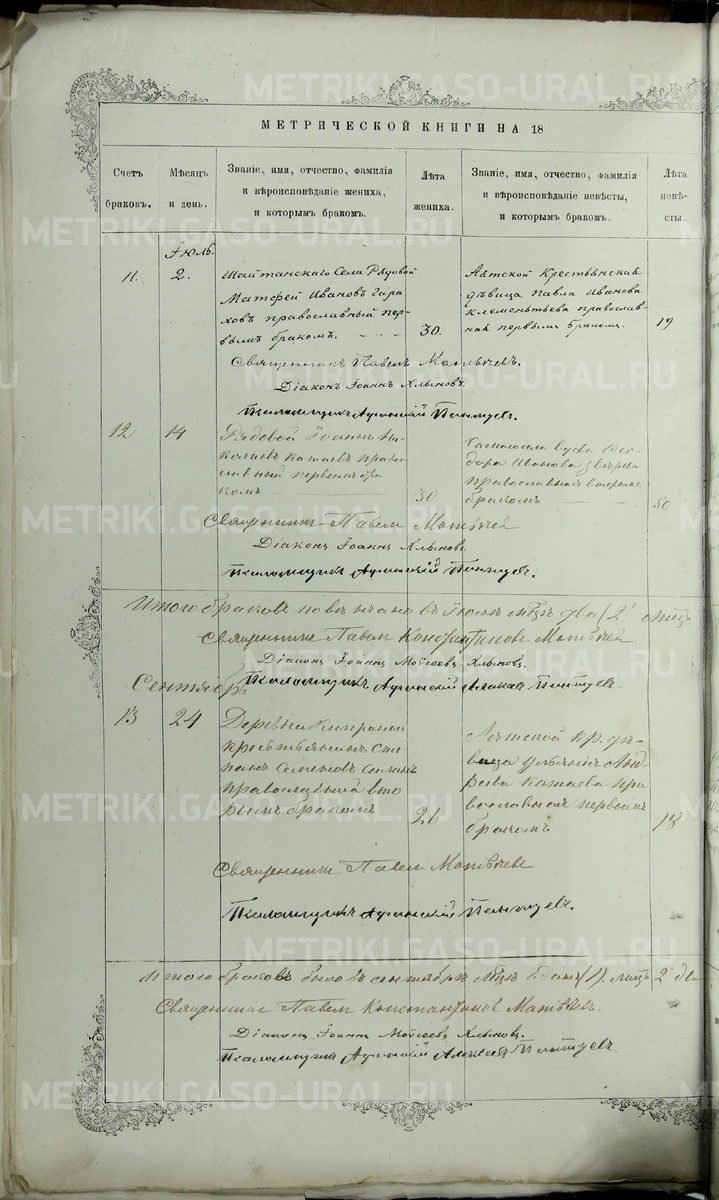 МЕТРИЧЕСКОЙ КНИГИ НА 18
Счетъ браковъ.
Мѣсяцъ и день.
Званіе, имя, отчество, фамилія
и вѣроисповѣданіе жениха,
и которымъ бракомъ.
Лѣта жениха.
Званіе, имя, отчество, фамилія
и вѣроисповѣданіе невѣсты,
и которымъ бракомъ.
Лѣта невѣ-
сты.
Іюль.
11.
2.
Шайтанскаго Села Рядовой
Матфей Ивановъ Гора
ховъ православный пер-
вымъ бракомъ.
30.
Аятской Крестьянская
дѣвица Павла Иванова
Клементьева православ-
ная первымъ бракомъ.
19
Священникъ Павелъ Матвѣевъ.
Діаконъ Іоаннъ Хлыновъ.
Псаломщикъ
12
14
Рядовой Іоаннъ Ни-
колаевъ Катаевъ право
славный первымъ бра
комъ
30
вдова Ѳео-
дора Иванова
православная вторымъ
бракомъ
30
Священникъ Павелъ Матвѣев
Діаконъ Іоаннъ Хлыновъ
Псаломщикъ
Итого браковъ повѣнчано въ Іюлѣ мцѣ два (2)
Священникъ Павелъ Константиновъ Матвѣев
Діаконъ Іоаннъ Моѵсеевъ Хлыновъ.
Сентябрь
Псаломщикъ
13
24
Деревни
крестьянинъ Сте
панъ Семеновъ
православный вто
рымъ бракомъ
26
Аятской кр. дѣ-
вица Анд
реева Катаева пра
вославная первымъ
бракомъ
18
Священникъ Павел Матвѣевъ
Псаломщикъ
Итого браковъ было въ сентябрѣ мцѣ одинъ (1). лицъ 2 два
Священникъ Павелъ Константинов Матвѣевъ.
Діаконъ Іоаннъ Моѵсеевъ Хлыновъ.
Псаломщикъ Алексѣевъ
METRIKI.GASO-URAL.RU